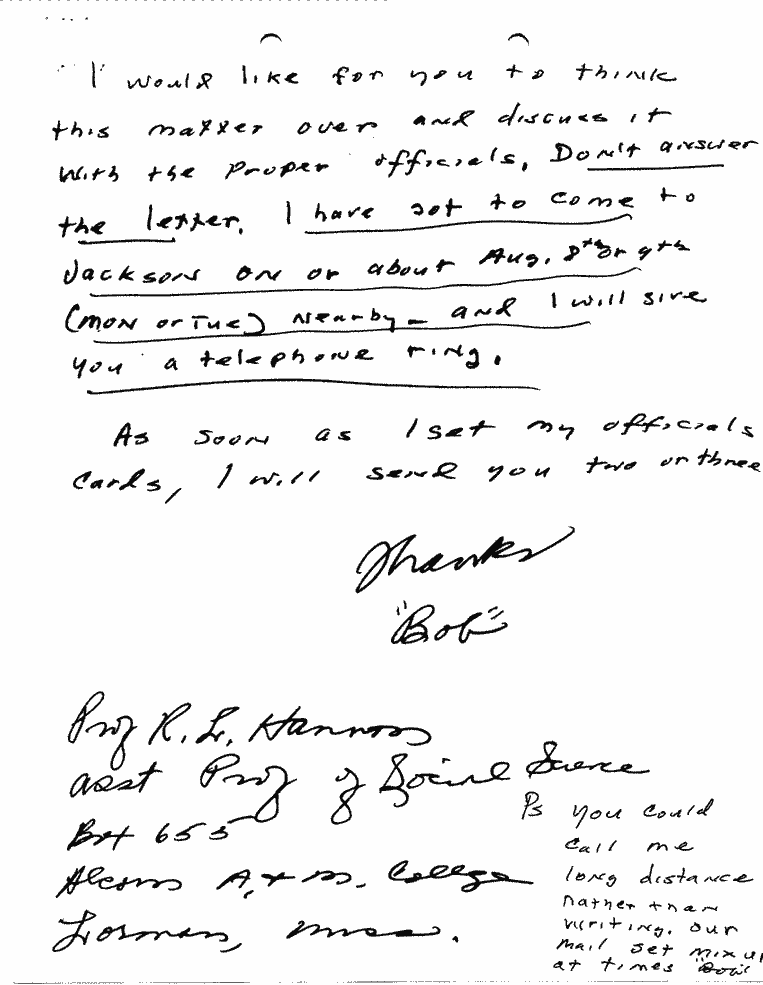 I would like for you to think
this matter over and discuss it
with the proper officials. Don't answer
the letter. I have got to come to
Jackson on or about Aug. 8th or 9th
(Mon or Tue) nearby - and I will give
you a telephone ring.
As soon as I get my officials
cards, I will send you two or three
Thanks
"Bob"
Prof R. L. Hannon
Asst Prof of Social Science
Box 655
Alcorn A. & M. College
Lorman, Miss.
Ps you could
call me
long distance
rather than
writing. our
mail get mix up
at times "Bob"